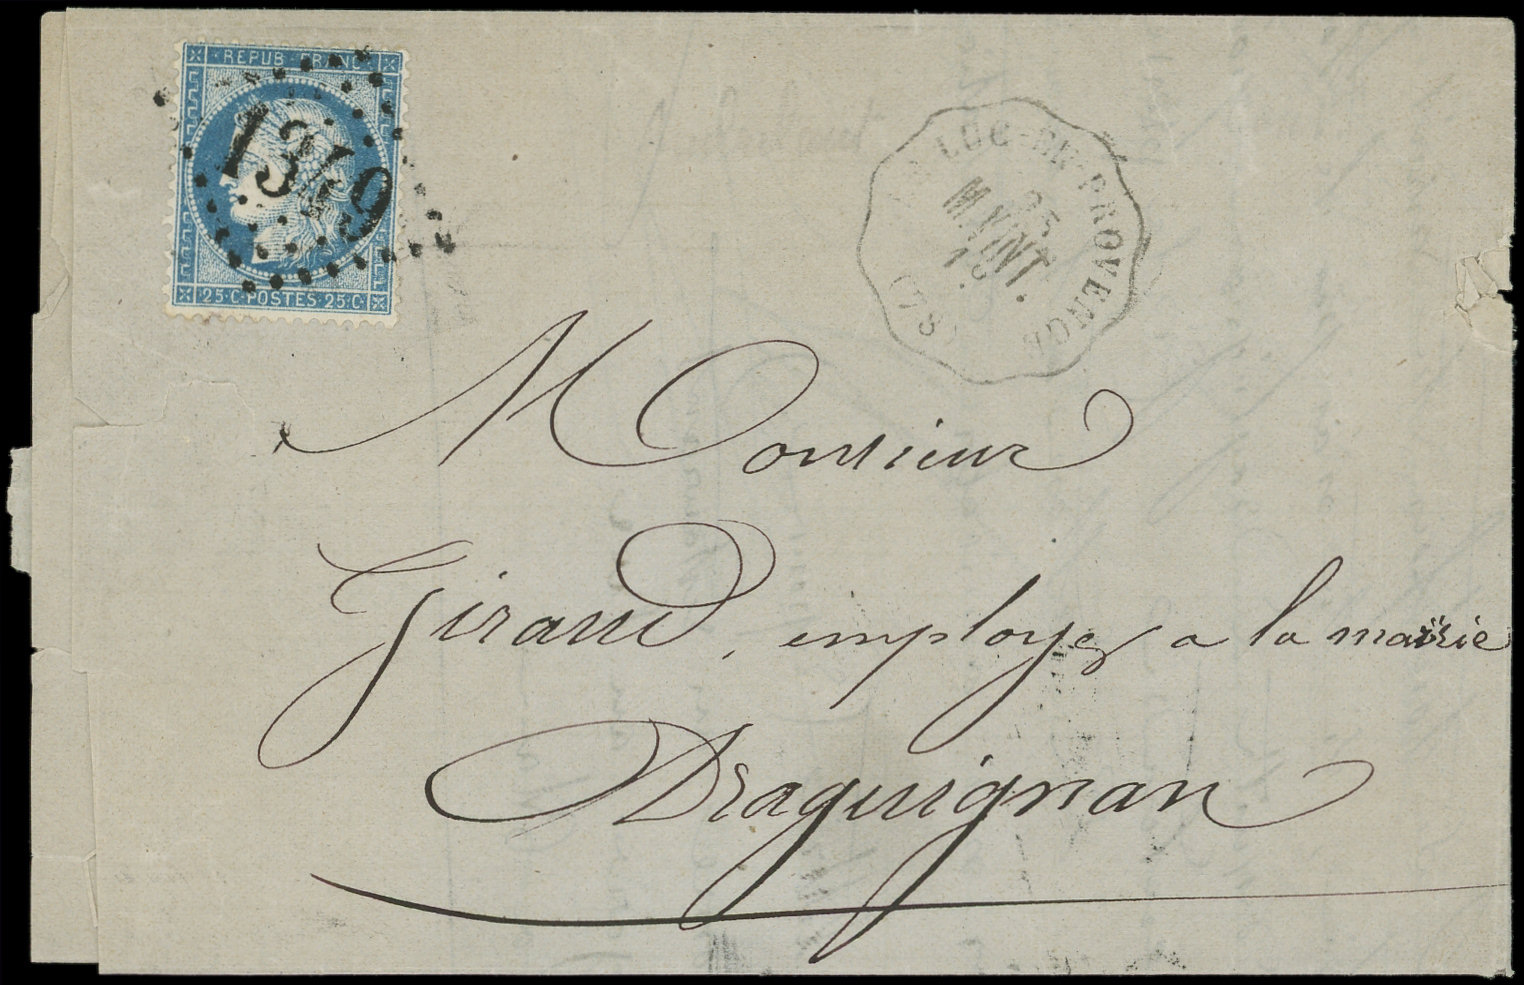 REPUB FRANC
1349
25·C·POSTES 25·C·
LUC-DE-PROVENCE
25
(78)
Monsieur
Giraud, employé a la mairie
Draguignan